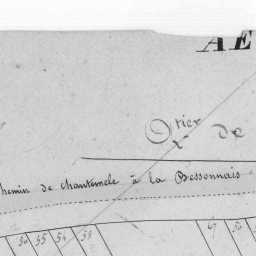 AE
Otier
de
chemin de chantemele à la Bessonnais
56 55 54 53 47